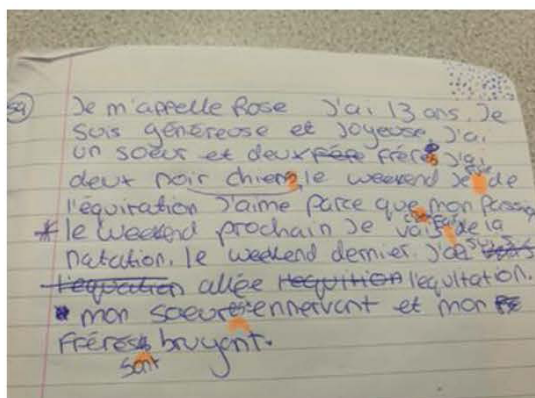 59
Je m'appelle Rose J'ai 13 ans. Je
suis généreuse et Joyeuse. J'ai
un soeur et deux frére fréres J'ai
deux noir chiens le weekend Je de
l'équiration J'aime parce que mon passion
* le weekend prochain Je vais faire de la
natation. le weekend dernier. J'ai suis
allée l'equitation.
* mon soeur est ennervant et mon
fréres bruyant.
sont